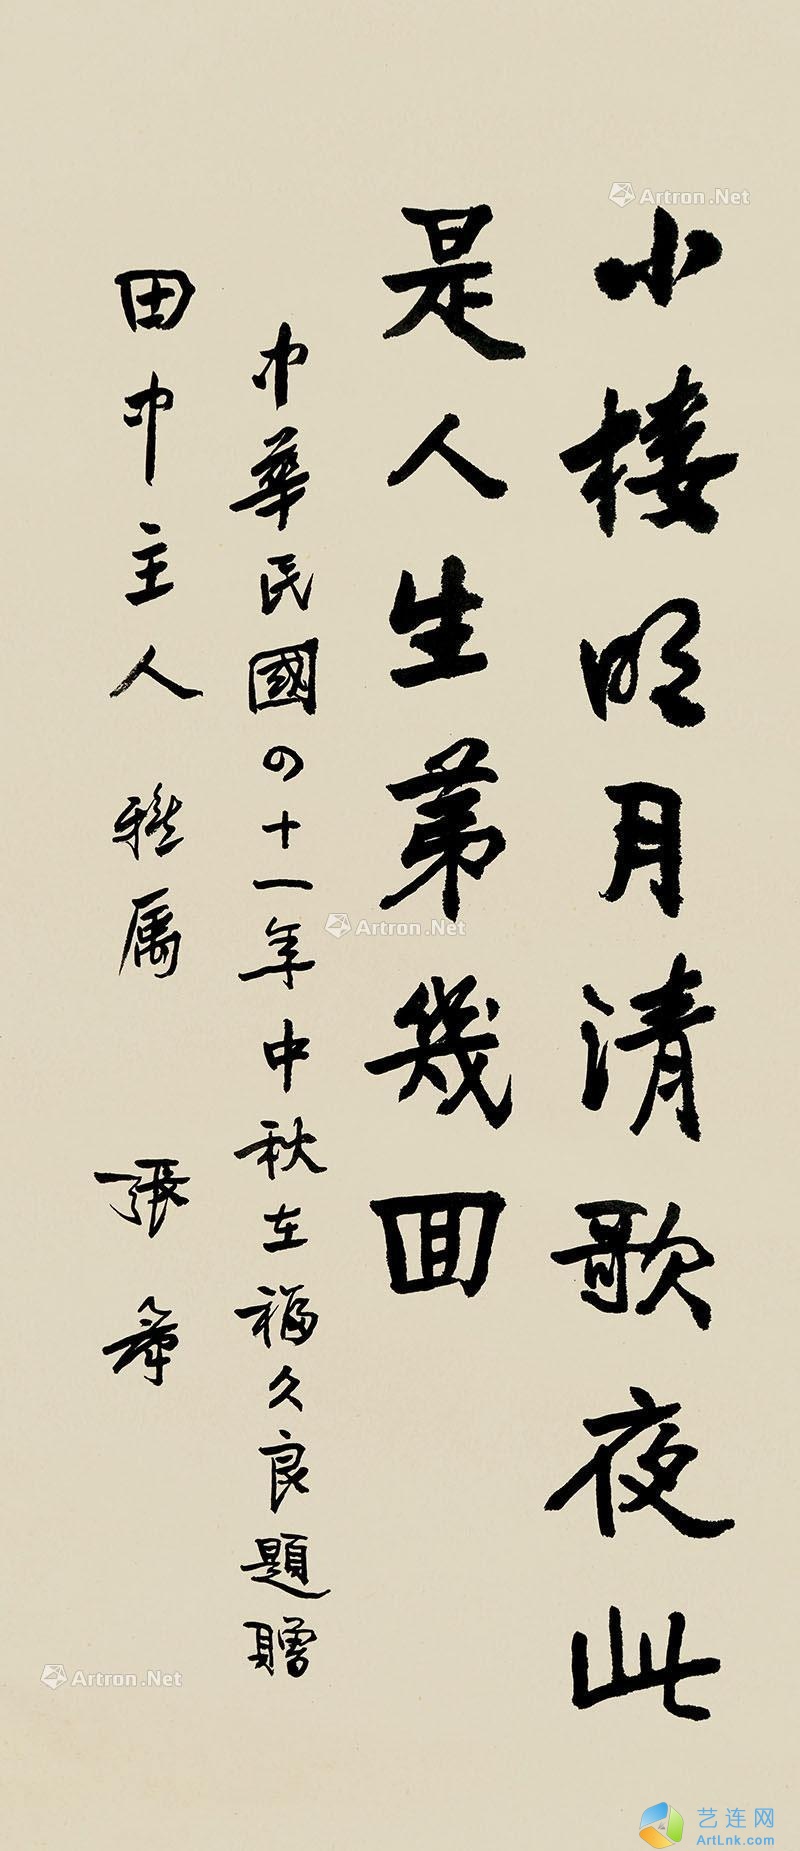 小楼明月清歌夜此
是人生苐幾回
中華民國の十一年中秋在福久良題贈
田中主人 雅属 張羣
Artron.Net
Artron.Net
Artron.Net
艺连网
ArtLnk.com